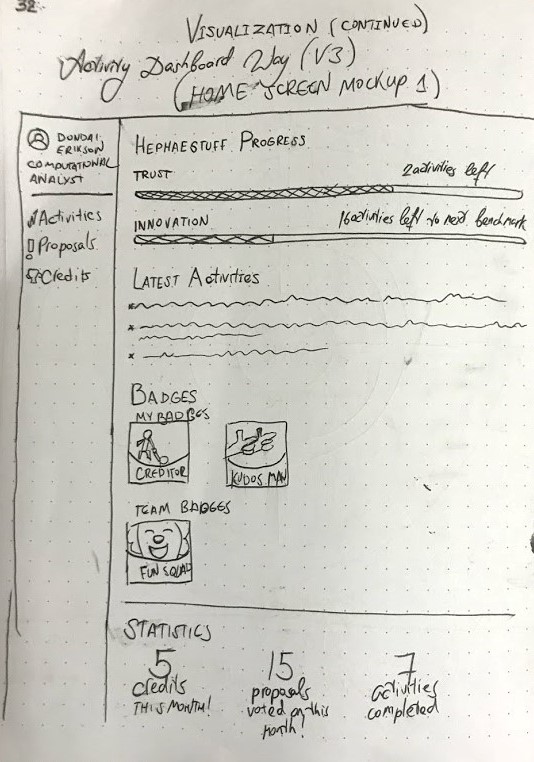 32
VISUALIZATION (CONTINUED)
Activity Dashboard Way (V3)
(HOME SCREEN MOCKUP 1)
DONDAI
ERIKSON
COMPUTATIONAL
ANALYST
Activities
Proposals
Credits
HEPHAESTUFF PROGRESS
TRUST
2 activities left
INNOVATION
16 activities left to next benchmark
LATEST ACTIVITIES
BADGES
MY BADGES
CREDITOR
KUDOS MAN
TEAM BADGES
FUN SQUAD
STATISTICS
5
credits
THIS MONTH!
15
proposals
voted on this
month!
7
activities
completed